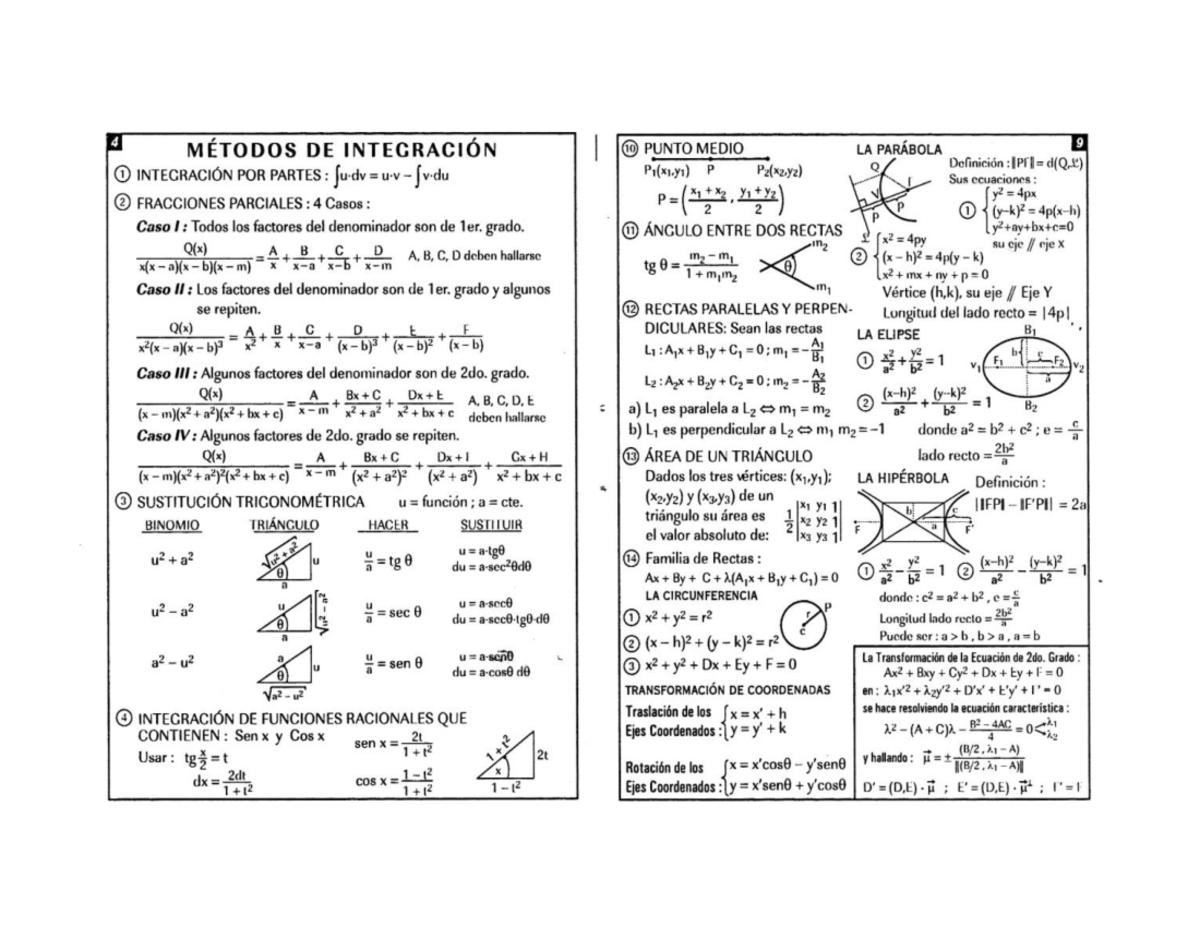 4
MÉTODOS DE INTEGRACIÓN
① INTEGRACIÓN POR PARTES : ∫u·dv = u·v – ∫v·du
② FRACCIONES PARCIALES : 4 Casos :
Caso I : Todos los factores del denominador son de 1er. grado.
Q(x)/(x(x – a)(x – b)(x – m)) = A/x + B/(x–a) + C/(x–b) + D/(x–m)   A, B, C, D deben hallarse
Caso II : Los factores del denominador son de 1er. grado y algunos
se repiten.
Q(x)/(x²(x – a)(x – b)³) = A/x² + B/x + C/(x–a) + D/(x – b)³ + E/(x – b)² + F/(x – b)
Caso III : Algunos factores del denominador son de 2do. grado.
Q(x)/((x – m)(x² + a²)(x² + bx + c)) = A/(x – m) + (Bx + C)/(x² + a²) + (Dx + E)/(x² + bx + c)   A, B, C, D, E
deben hallarse
Caso IV : Algunos factores de 2do. grado se repiten.
Q(x)/((x – m)(x² + a²)²(x² + bx + c)) = A/(x – m) + (Bx + C)/(x² + a²)² + (Dx + I)/(x² + a²) + (Gx + H)/(x² + bx + c)
③ SUSTITUCIÓN TRIGONOMÉTRICA   u = función ; a = cte.
BINOMIO   TRIÁNGULO   HACER   SUSTITUIR
u² + a²   √u² + a²   u   θ   a   u/a = tg θ   u = a·tgθ
du = a·sec²θdθ
u² – a²   u   √u² – a²   θ   a   u/a = sec θ   u = a·secθ
du = a·secθ·tgθ·dθ
a² – u²   a   u   θ   √a² – u²   u/a = sen θ   u = a·senθ
du = a·cosθ dθ
④ INTEGRACIÓN DE FUNCIONES RACIONALES QUE
CONTIENEN : Sen x y Cos x   sen x = 2t/(1 + t²)
Usar : tg x/2 = t   1 + t²   2t   x   1 – t²
dx = 2dt/(1 + t²)   cos x = (1 – t²)/(1 + t²)
9
⑩ PUNTO MEDIO
P₁(x₁,y₁)   P   P₂(x₂,y₂)
P = ((x₁ + x₂)/2 , (y₁ + y₂)/2)
⑪ ÁNGULO ENTRE DOS RECTAS
tg θ = (m₂ – m₁)/(1 + m₁m₂)   m₂   θ   m₁
⑫ RECTAS PARALELAS Y PERPEN-
DICULARES: Sean las rectas
L₁ : A₁x + B₁y + C₁ = 0 ; m₁ = – A₁/B₁
L₂ : A₂x + B₂y + C₂ = 0 ; m₂ = – A₂/B₂
a) L₁ es paralela a L₂ ⇔ m₁ = m₂
b) L₁ es perpendicular a L₂ ⇔ m₁ m₂ = –1
⑬ ÁREA DE UN TRIÁNGULO
Dados los tres vértices: (x₁,y₁);
(x₂,y₂) y (x₃,y₃) de un
triángulo su área es
el valor absoluto de:   1/2 |x₁ y₁ 1|
|x₂ y₂ 1|
|x₃ y₃ 1|
⑭ Familia de Rectas :
Ax + By + C + λ(A₁x + B₁y + C₁) = 0
LA CIRCUNFERENCIA
① x² + y² = r²   r   P   c
② (x – h)² + (y – k)² = r²
③ x² + y² + Dx + Ey + F = 0
TRANSFORMACIÓN DE COORDENADAS
Traslación de los   x = x' + h
Ejes Coordenados :   y = y' + k
Rotación de los   x = x'cosθ – y'senθ
Ejes Coordenados :   y = x'senθ + y'cosθ
LA PARÁBOLA
Q   V   P   P   Definición : ‖PF‖ = d(Q,ℒ)
Sus ecuaciones :
① y² = 4px
(y–k)² = 4p(x–h)
y²+ay+bx+c=0
su eje // eje X
② x² = 4py
(x – h)² = 4p(y – k)
x² + mx + ny + p = 0
Vértice (h,k), su eje // Eje Y
Longitud del lado recto = |4p|
LA ELIPSE
① x²/a² + y²/b² = 1   B₁   b   c   F₁   F₂   V₁   V₂   a   B₂
② (x–h)²/a² + (y–k)²/b² = 1
donde a² = b² + c² ; e = c/a
lado recto = 2b²/a
LA HIPÉRBOLA   Definición :
b   c   a   F   F'   |‖FP‖ – ‖F'P‖| = 2a
① x²/a² – y²/b² = 1   ② (x–h)²/a² – (y–k)²/b² = 1
donde : c² = a² + b² , e = c/a
Longitud lado recto = 2b²/a
Puede ser : a > b , b > a , a = b
La Transformación de la Ecuación de 2do. Grado :
Ax² + Bxy + Cy² + Dx + Ey + F = 0
en : λ₁x'² + λ₂y'² + D'x' + E'y' + F' = 0
se hace resolviendo la ecuación característica :
λ² – (A + C)λ – (B² – 4AC)/4 = 0 < λ₁
λ₂
y hallando : μ⃗ = ± (B/2 , λ₁ – A)/‖(B/2 , λ₁ – A)‖
D' = (D,E) · μ⃗ ; E' = (D,E) · μ⃗⊥ ; F' = F